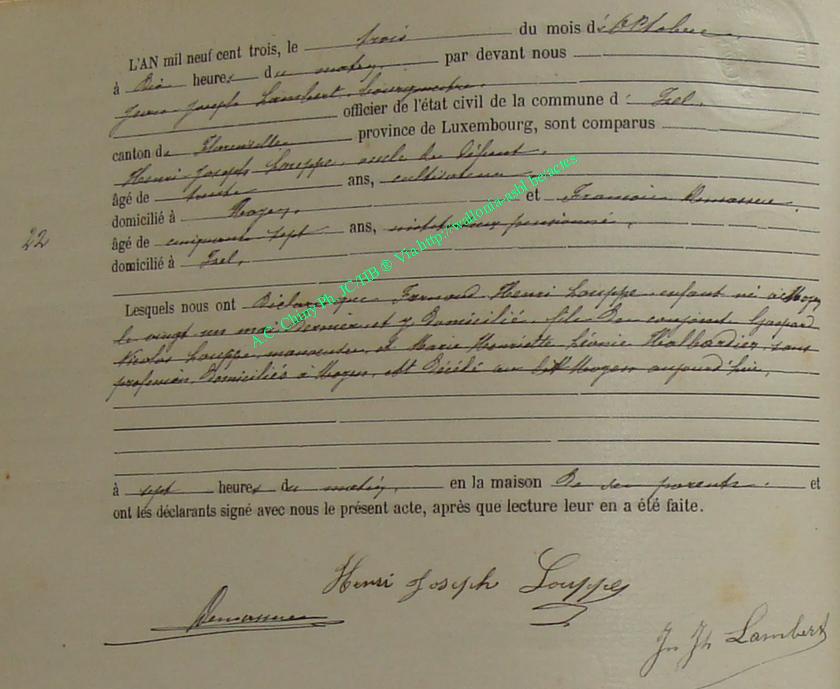 L'AN mil neuf cent trois, le trois du mois d'Octobre,
à Dix heures du matin, par devant nous
Jean Joseph Lambert, bourgmestre,
officier de l'état civil de la commune d' Izel,
canton de Florenville province de Luxembourg, sont comparus
Henri Joseph Louppe, oncle du défunt,
âgé de trente ans, cultivateur
domicilié à Moyen, et François Demasseu
âgé de cinquante sept ans, instituteur pensionné,
22
domicilié à Izel,
Lesquels nous ont Déclaré que Fernand Henri Louppe, enfant né à Moyen
le vingt un mai Dernier et y Domicilié, fils Des conjoints Gaspard
Nicolas Louppe, manœuvre, et Marie Henriette Léonie Halbardier, sans
profession, Domiciliés à Moyen, est Décédé au dit Moyen aujourd'hui,
à sept heures du matin, en la maison De ses parents et
ont les déclarants signé avec nous le présent acte, après que lecture leur en a été faite.
Henri Joseph Louppe
Jn Jh Lambert
A.C. Chiny Ph. JC/HB ® Via http://wallonia-asbl.be/actes